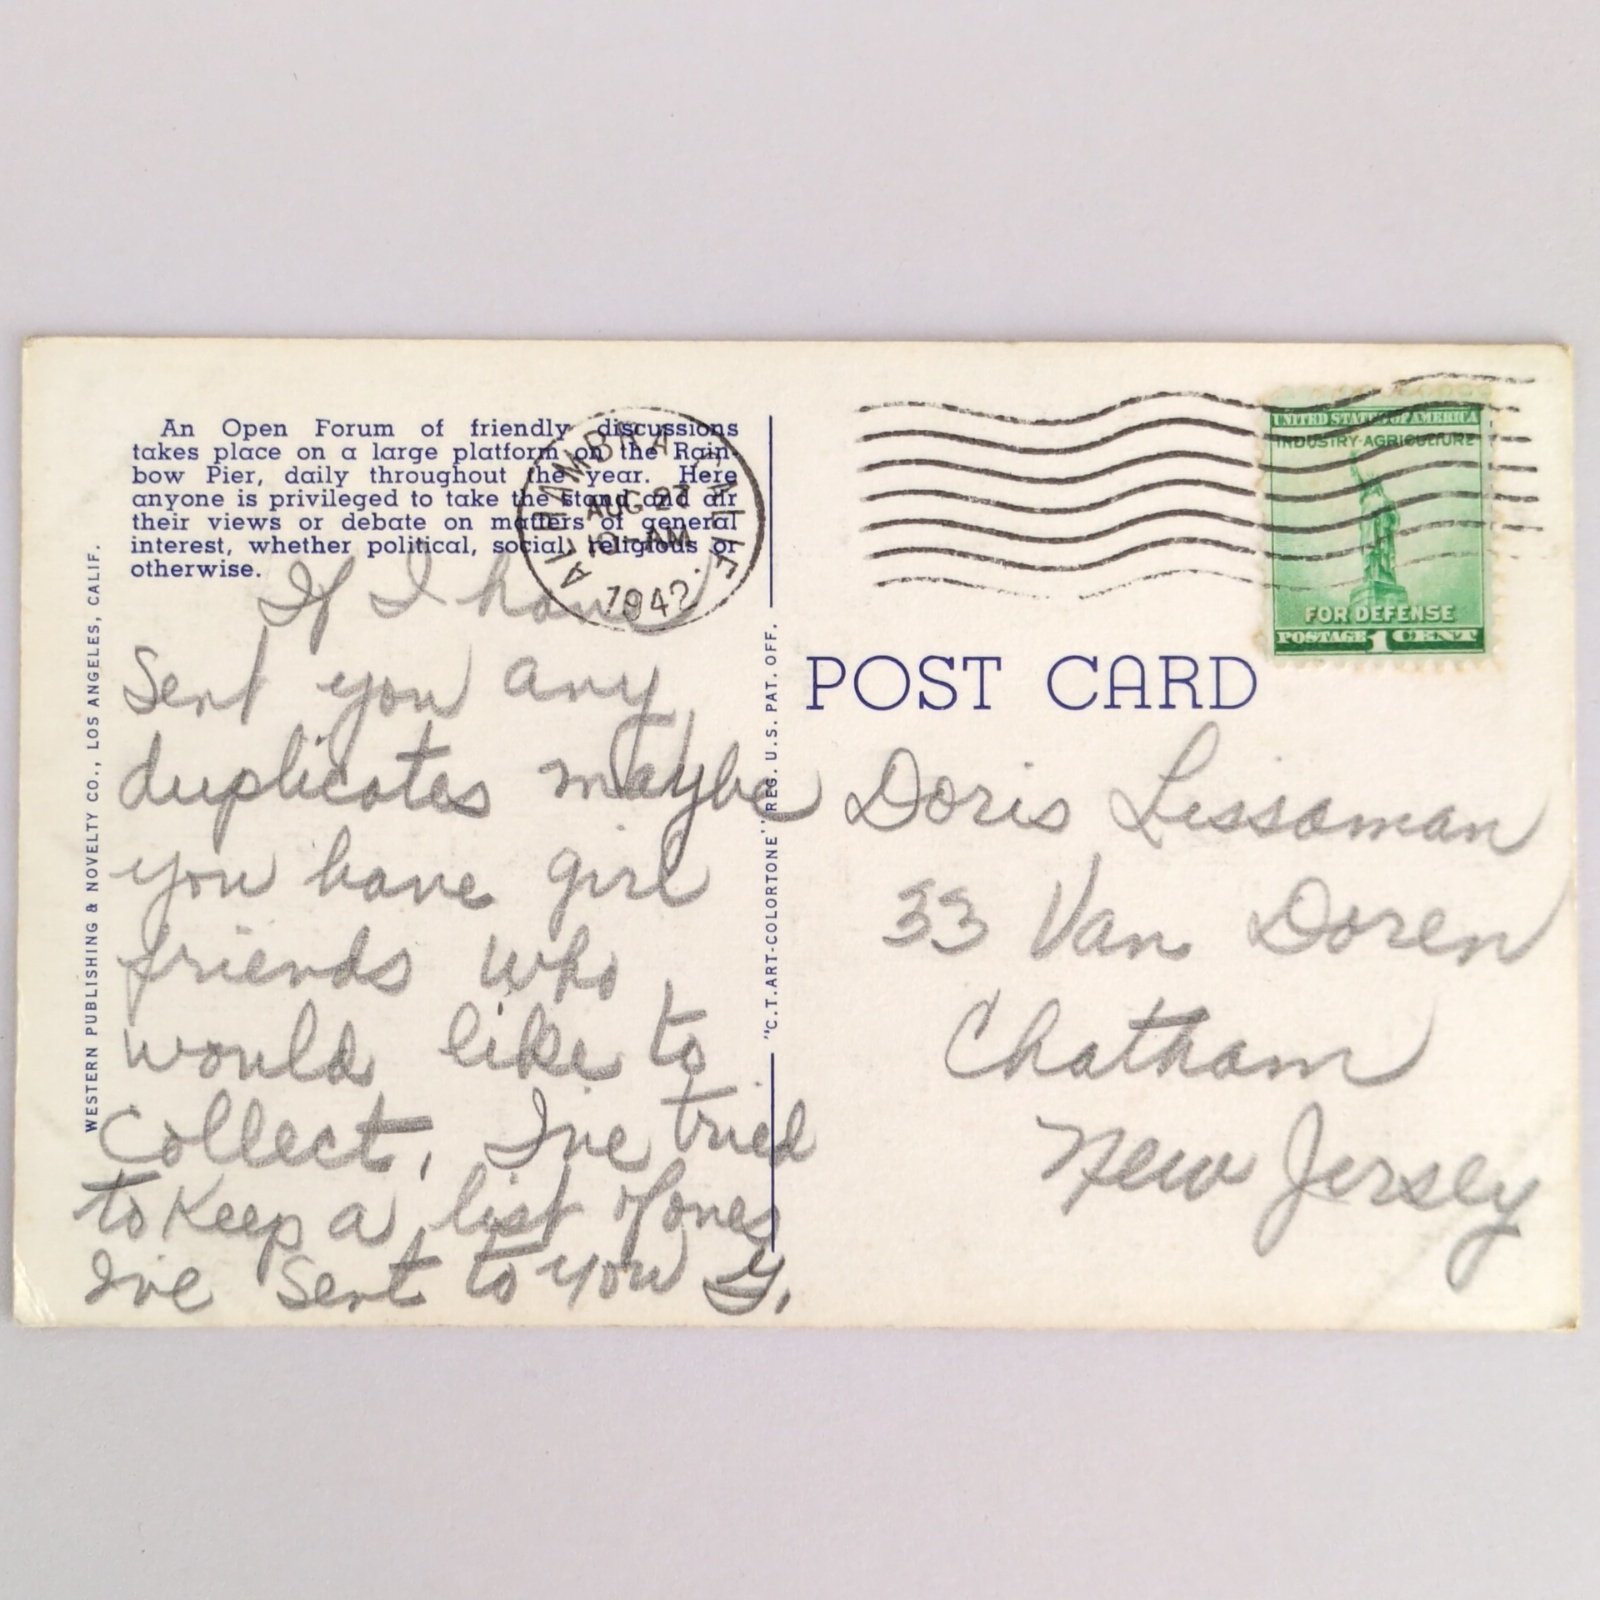 An Open Forum of friendly discussions
takes place on a large platform on the Rain-
bow Pier, daily throughout the year. Here
anyone is privileged to take the stand and air
their views or debate on matters of general
interest, whether political, social, religious or
otherwise.
ALHAMBRA CALIF.
AUG 27
10 - AM
1942
If I have
Sent you any
duplicates maybe
you have girl
friends who
would like to
Collect, I've tried
to Keep a list of ones
I've Sent to you G.
WESTERN PUBLISHING & NOVELTY CO., LOS ANGELES, CALIF.
"C.T. ART-COLORTONE" REG. U.S. PAT. OFF.
UNITED STATES OF AMERICA
INDUSTRY·AGRICULTURE
FOR DEFENSE
POSTAGE 1 CENT
POST CARD
Doris Lissaman
33 Van Doren
Chatham
New Jersey